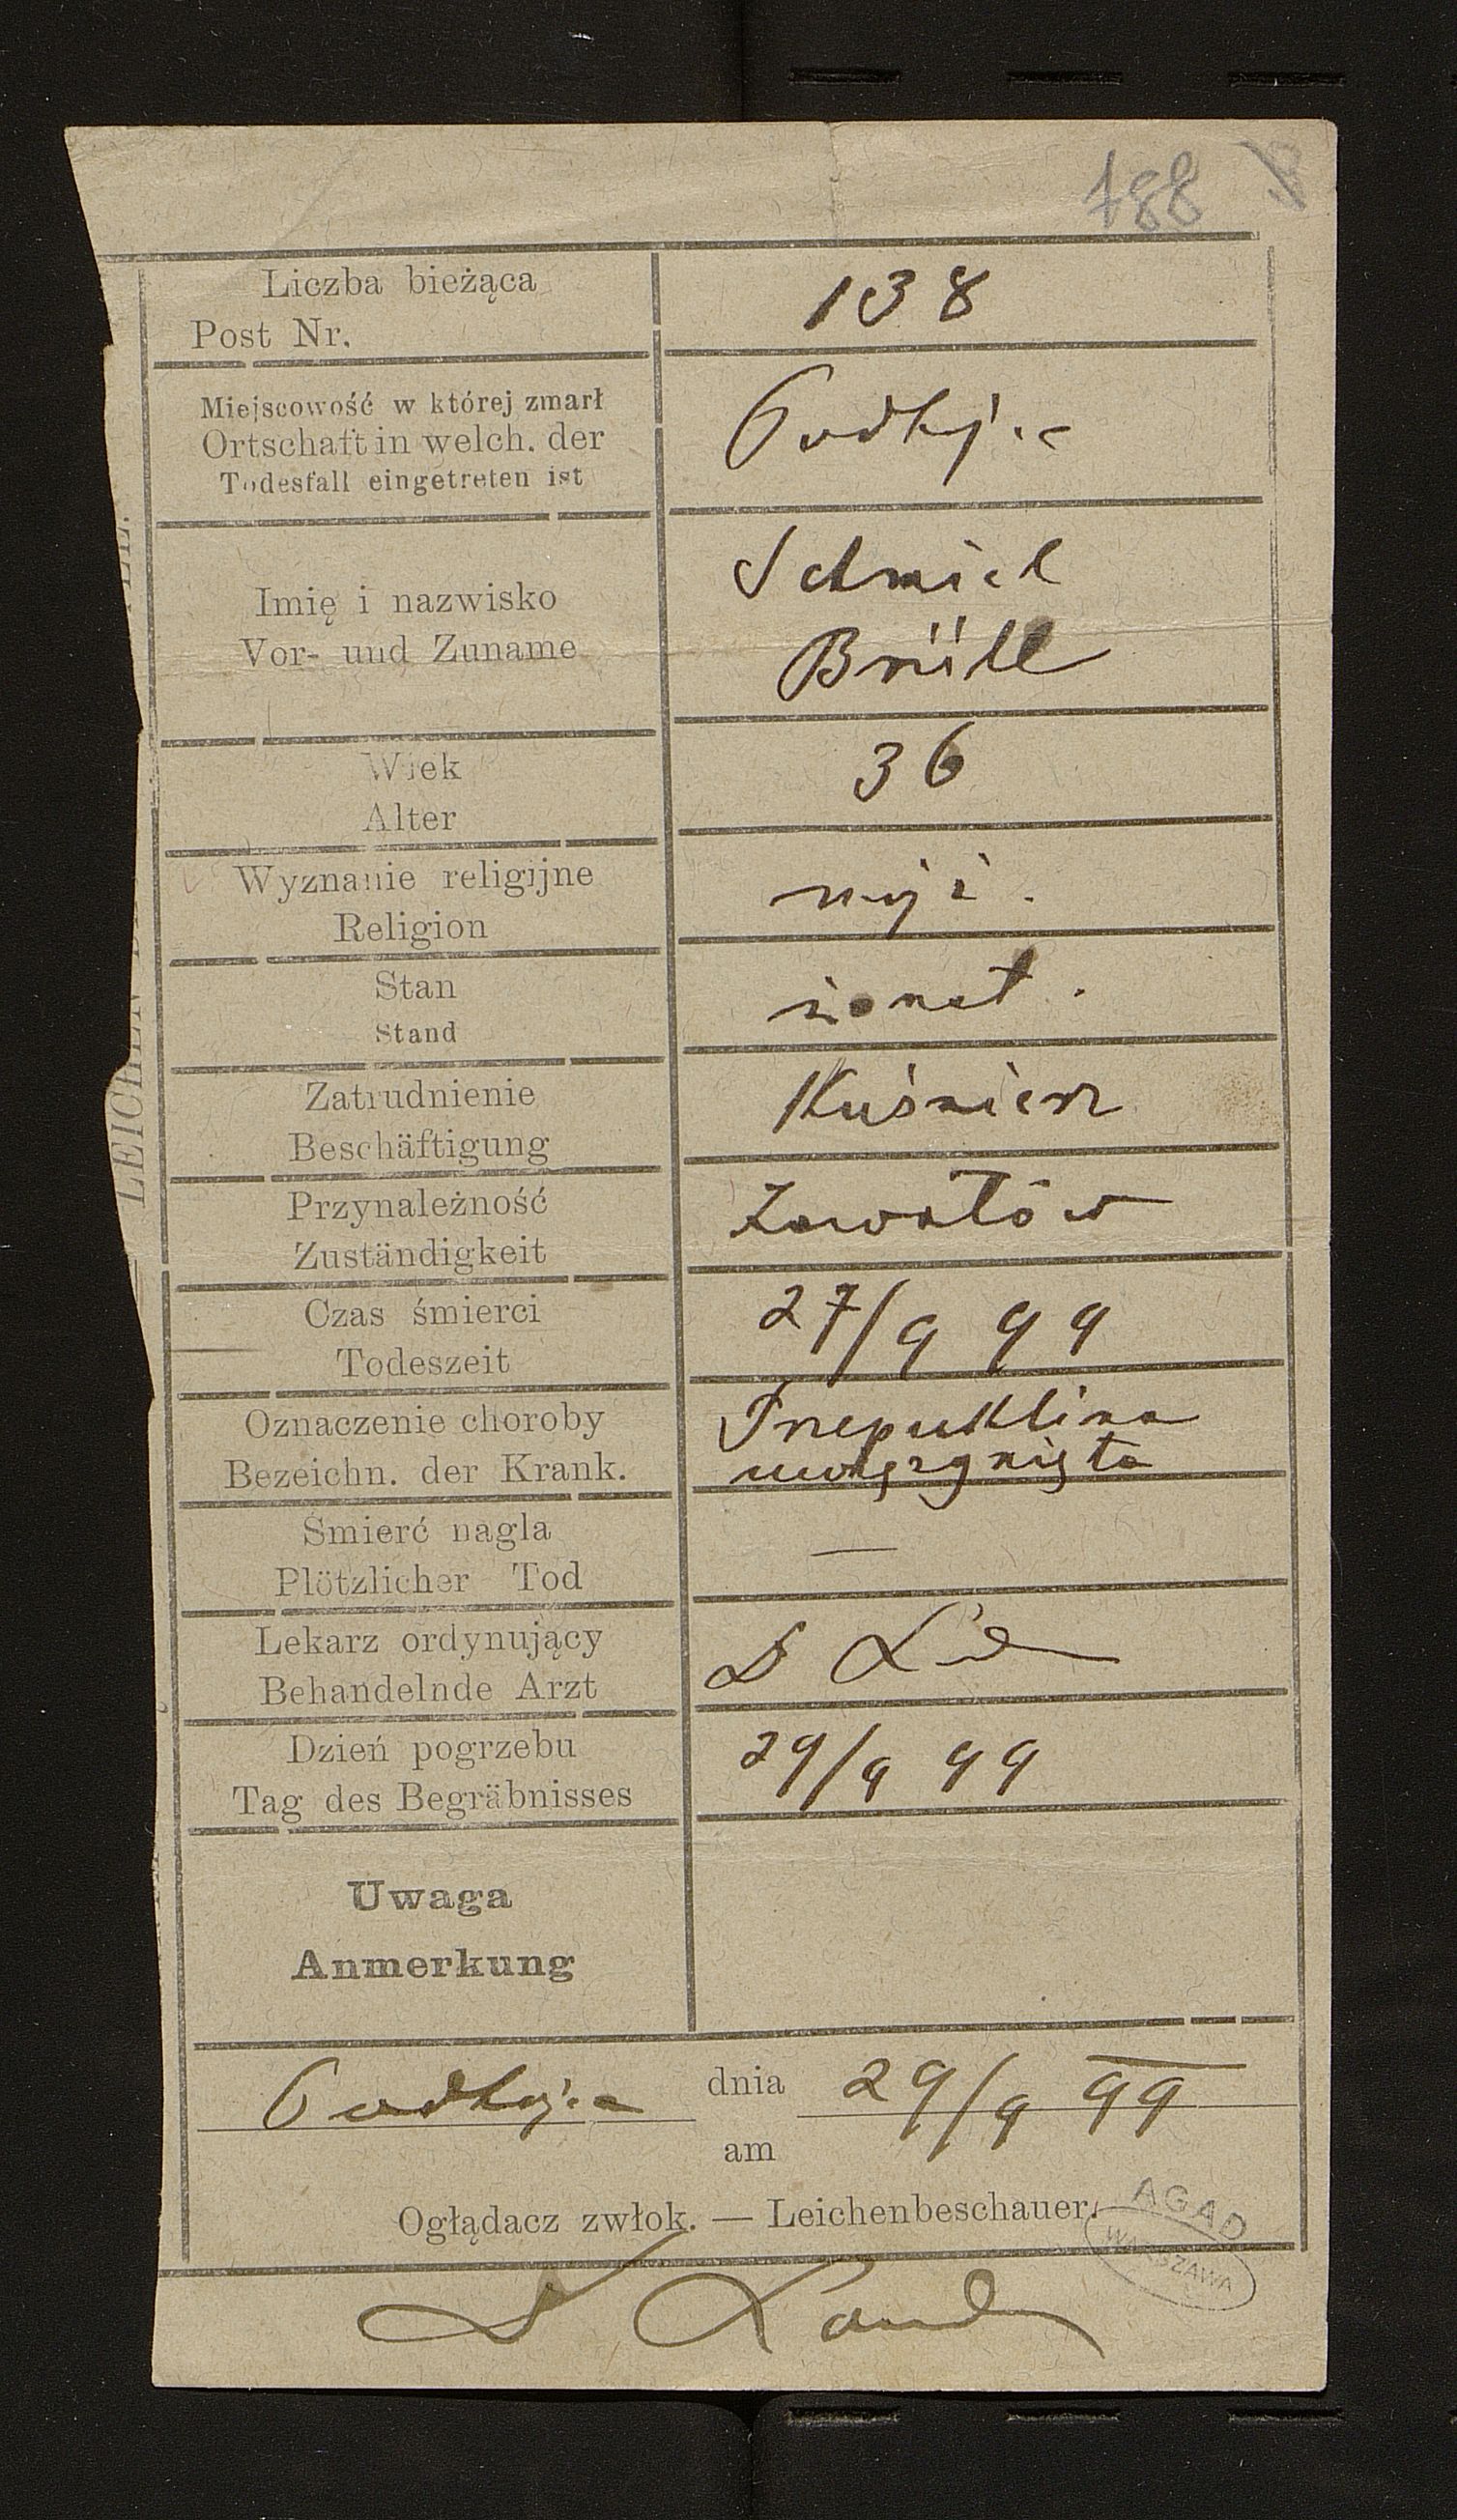 188
Liczba bieżąca
Post Nr.
138
Miejscowość w której zmarł
Ortschaft in welch. der
Todesfall eingetreten ist
Podhajce
Imię i nazwisko
Vor- und Zuname
Schmiel
Brüll
Wiek
Alter
36
Wyznanie religijne
Religion
mojż.
Stan
Stand
żonat.
Zatrudnienie
Beschäftigung
Kuśnierz
Przynależność
Zuständigkeit
Zawałów
Czas śmierci
Todeszeit
27/9 99
Oznaczenie choroby
Bezeichn. der Krank.
Przepuklina
uwięzgnięta
Śmierć nagla
Plötzlicher Tod
—
Lekarz ordynujący
Behandelnde Arzt
Dzień pogrzebu
Tag des Begräbnisses
29/9 99
Uwaga
Anmerkung
Podhajce dnia 29/9 99
am
Oglądacz zwłok. — Leichenbeschauer.
AGAD
WARSZAWA
LEICHEN